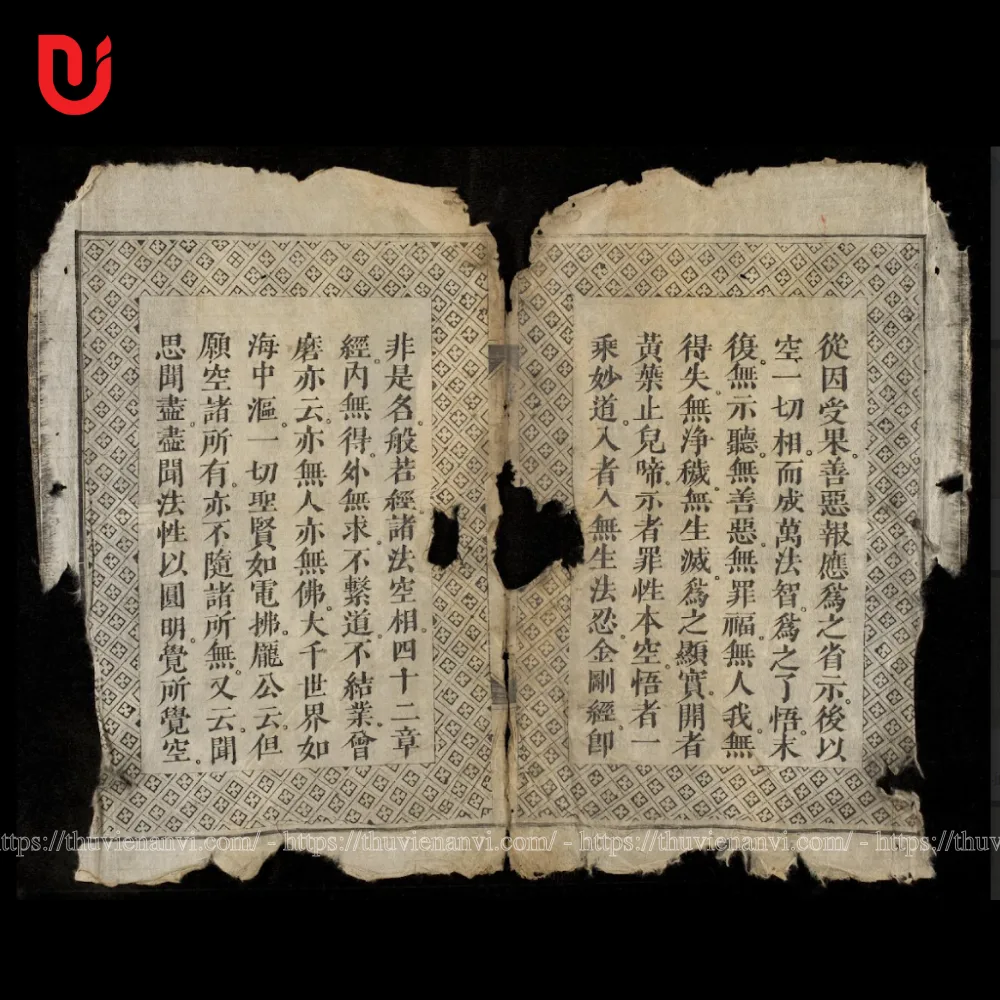 從因受果。善惡報應爲之省示。後以
空一切相。而成萬法智。爲之了悟。末
復。無示聽。無善惡。無罪福。無人我。無
得失。無淨穢。無生滅。爲之顯實。開者
黃葉止兒啼。示者罪性本空。悟者一
乘妙道。入者入無生法忍。金剛經。卽
非是名。般若經。諸法空相。四十二章
經。內無得。外無求。不繫道。不結業。曾
磨亦云。亦無人亦無佛。大千世界如
海中漚。一切聖賢如電拂。龐公云。但
願空諸所有。亦不隨諸所無。又云。聞
思聞盡。盡聞法性以圓明。覺所覺空。
https://thuvienanvi.com/ - https://thuvienanvi.com/ - https://thuv